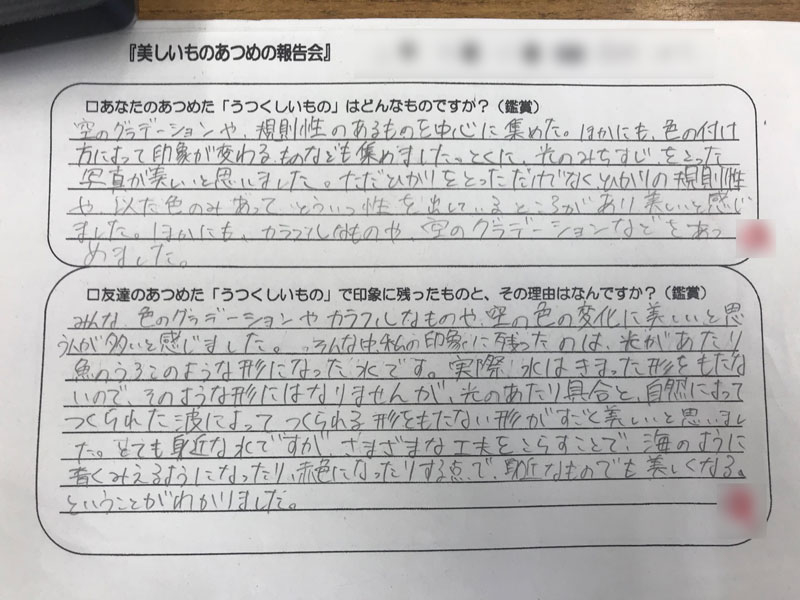 『美しいものあつめの報告会』
□あなたのあつめた「うつくしいもの」はどんなものですか？（鑑賞）
空のグラデーションや、規則性のあるものを中心に集めた。ほかにも、色の付け
方によって印象が変わるものなども集めました。とくに、光のみちすじをとった
写真が美しいと思いました。ただひかりをとっただけでなく、ひかりの規則性
や、似た色のみあって、とういつ性を出しているところがあり美しいと感じ
ました。ほかにも、カラフルなものや、空のグラデーションなどをあつ
めました。
□友達のあつめた「うつくしいもの」で印象に残ったものと、その理由はなんですか？（鑑賞）
みんな、色のグラデーションやカラフルなものや、空の色の変化に美しいと思
う人が多いと感じました。そんな中、私の印象に残ったのは、光があたり
魚のうろこのような形になった水です。実際、水はきまった形をもたな
いので、そのような形にはなりませんが、光のあたり具合と、自然によって
つくられた波によってつくられる形をもたない形がすごく美しいと思いまし
た。とても身近な水ですが、さまざまな工夫をこらすことで、海のように
青くみえるようになったり、赤色になったりする点で、身近なものでも美しくなる。
ということがわかりました。